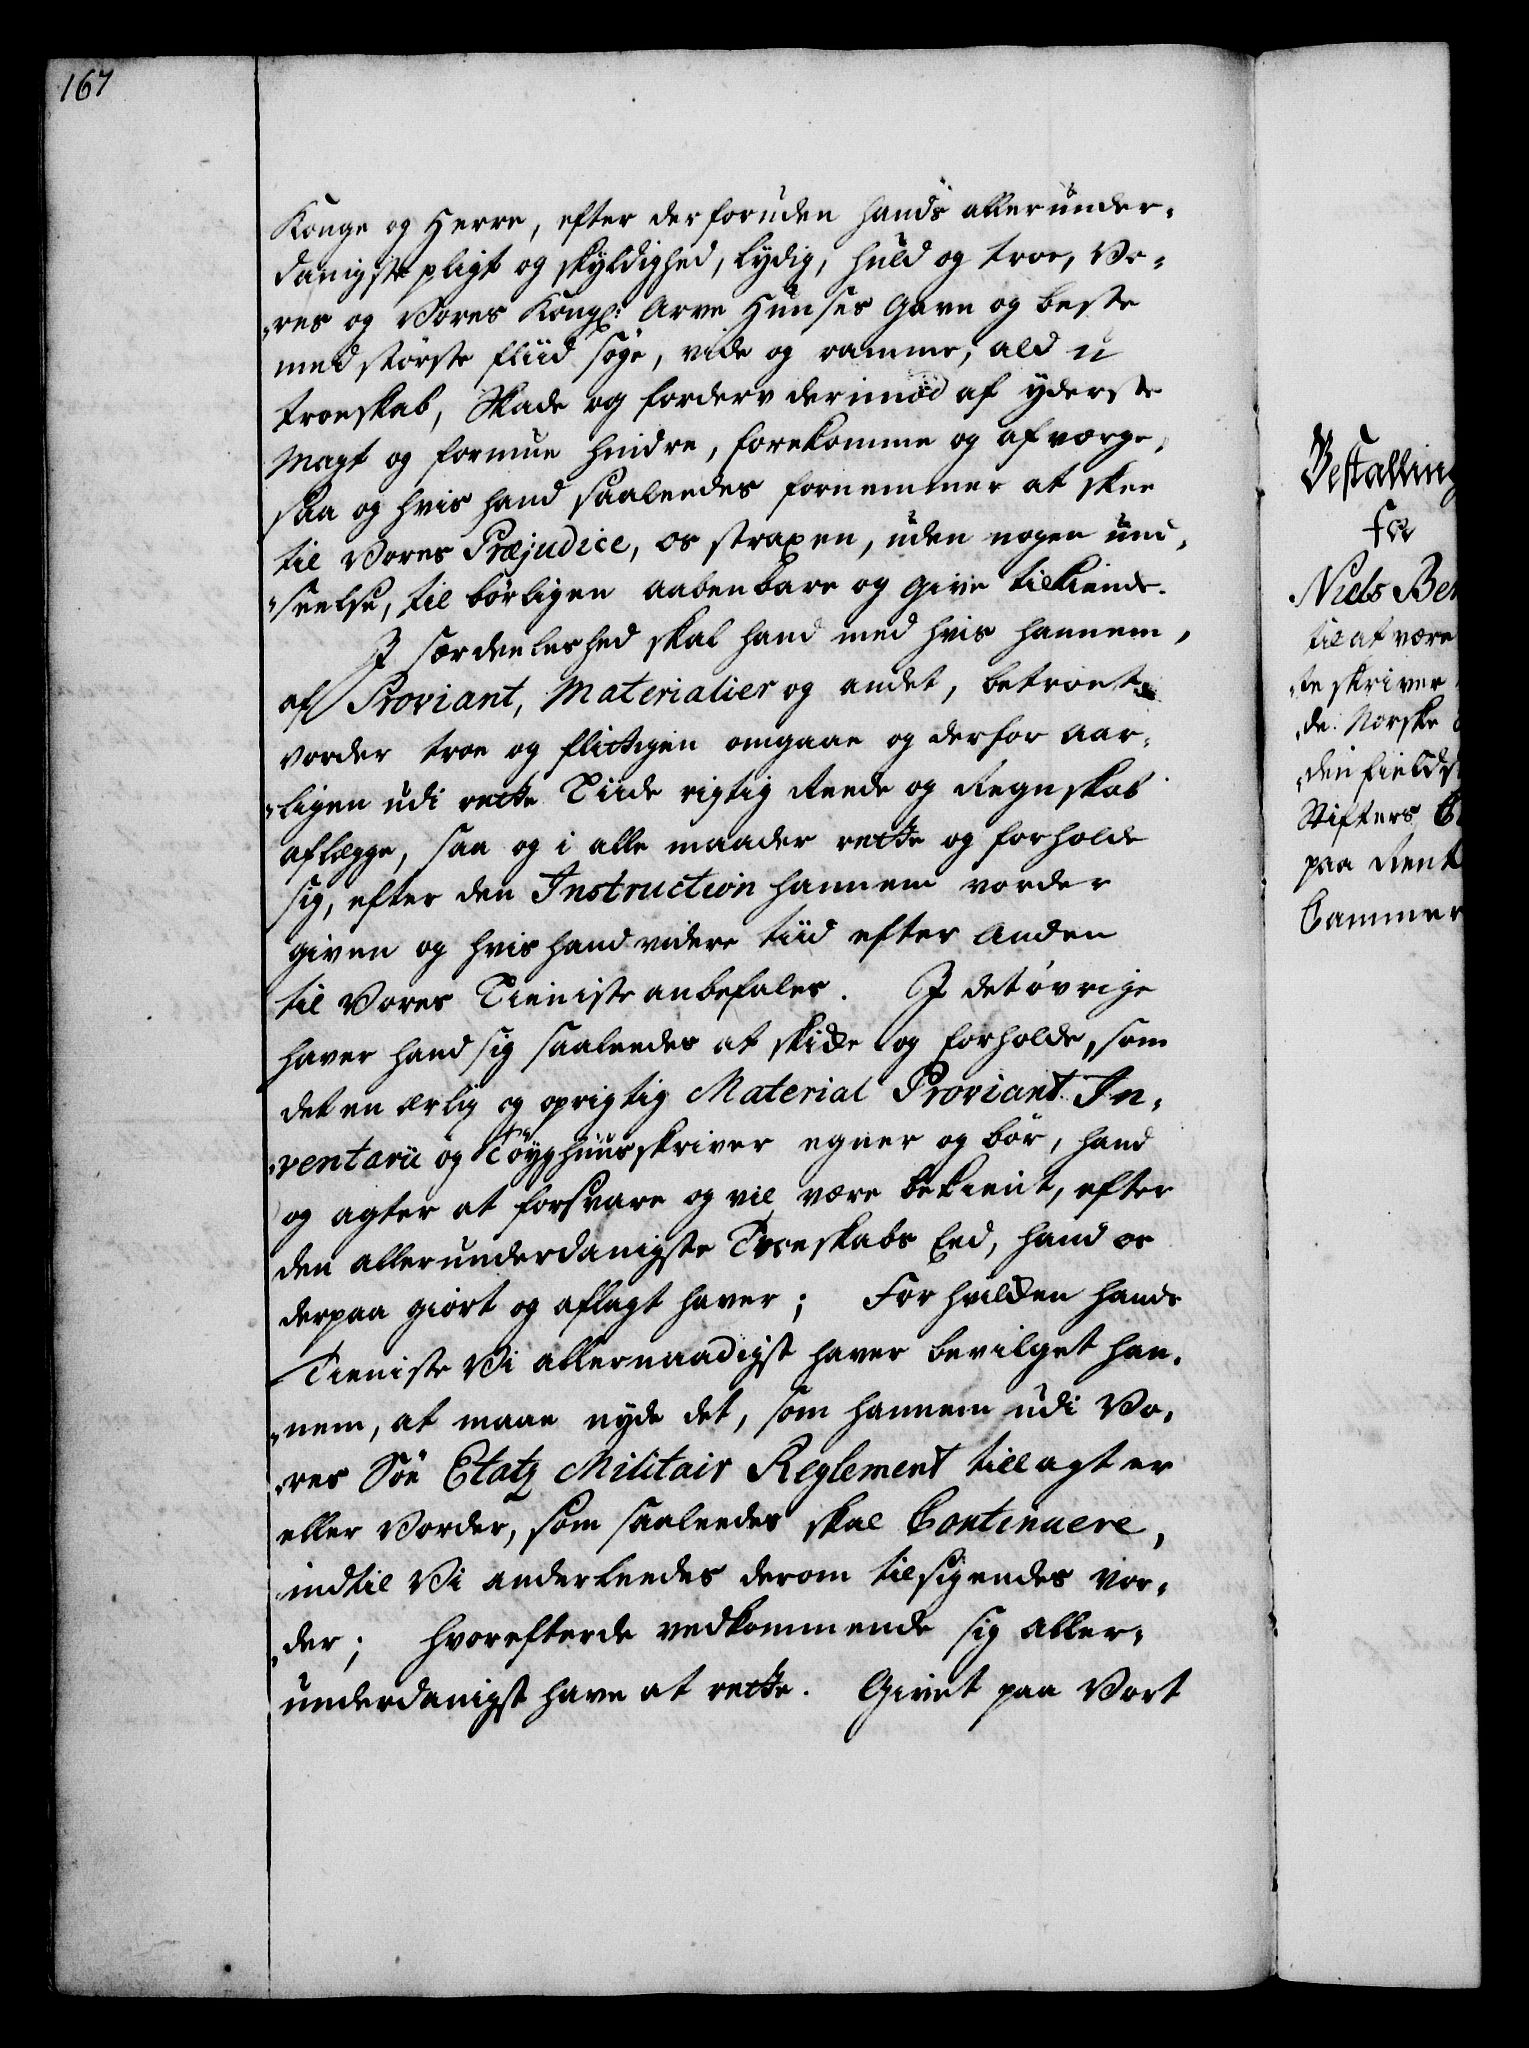 167
Konge og Herre, efter der foruden hands allerunder-
danigste pligt og skyldighed, lydig, huld og troe, Vo-
res og Vores Kongl: Arve Huuses Gavn og beste
med störste fliid söge, vide og ramme, ald u
troeskab, Skade og forderv derimod af yderste
Magt og formue hindre, forekomme og afværge,
saa og hvis hand saaleedes fornemmer at skee
til Vores Præjudice, os straxen, uden nogen und-
seelse, til börligen aabenbare og give tilkiende.
I særdeeleshed skal hand med hvis hannem,
af Proviant, Materialier og andet, betroet
vorder troe og flittigen omgaae og derfor aar-
ligen udi rette Tiide rigtig Reede og Regnskab
aflægge, saa og i alle maader rette og forholde
sig, efter den Instruction hannem vorder
given og hvis hand videre tiid efter anden
til Vores Tieniste anbefales. I det övrige
haver hand sig saaleedes at skicke og forholde, som
det en ærlig og oprigtig Material Proviant In-
ventarii og Töyghuusskriver egner og bör, hand
og agter at forsvare og vil være bekient, efter
den allerunderdanigste Troeskabs Eed, hand os
derpaa giort og aflagt haver; For hvilcken hands
Tieniste Vi allernaadigst haver bevilget han-
nem, at maae nyde det, som hannem udi Vo-
res Söe Etatz Militair Reglement tillagt er
eller Vorder, som saaleedes skal Continuere,
indtil Vi anderleedes derom tilsigendes vor-
der; hvorefter de vedkommende sig aller-
underdanigst have at rette. Givet paa Vort
Bestalling
for
Niels Ber
til at være
te skriver
de Norske
den fields
Stifters
paa Rent
Cammer